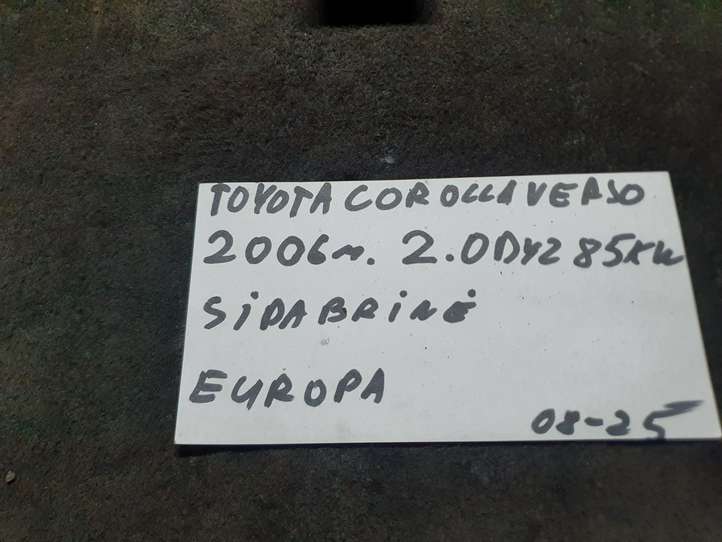 TOYOTA COROLLA VERSO
2006m. 2.0DYZ 85KW
SIDABRINĖ
EUROPA
08-25